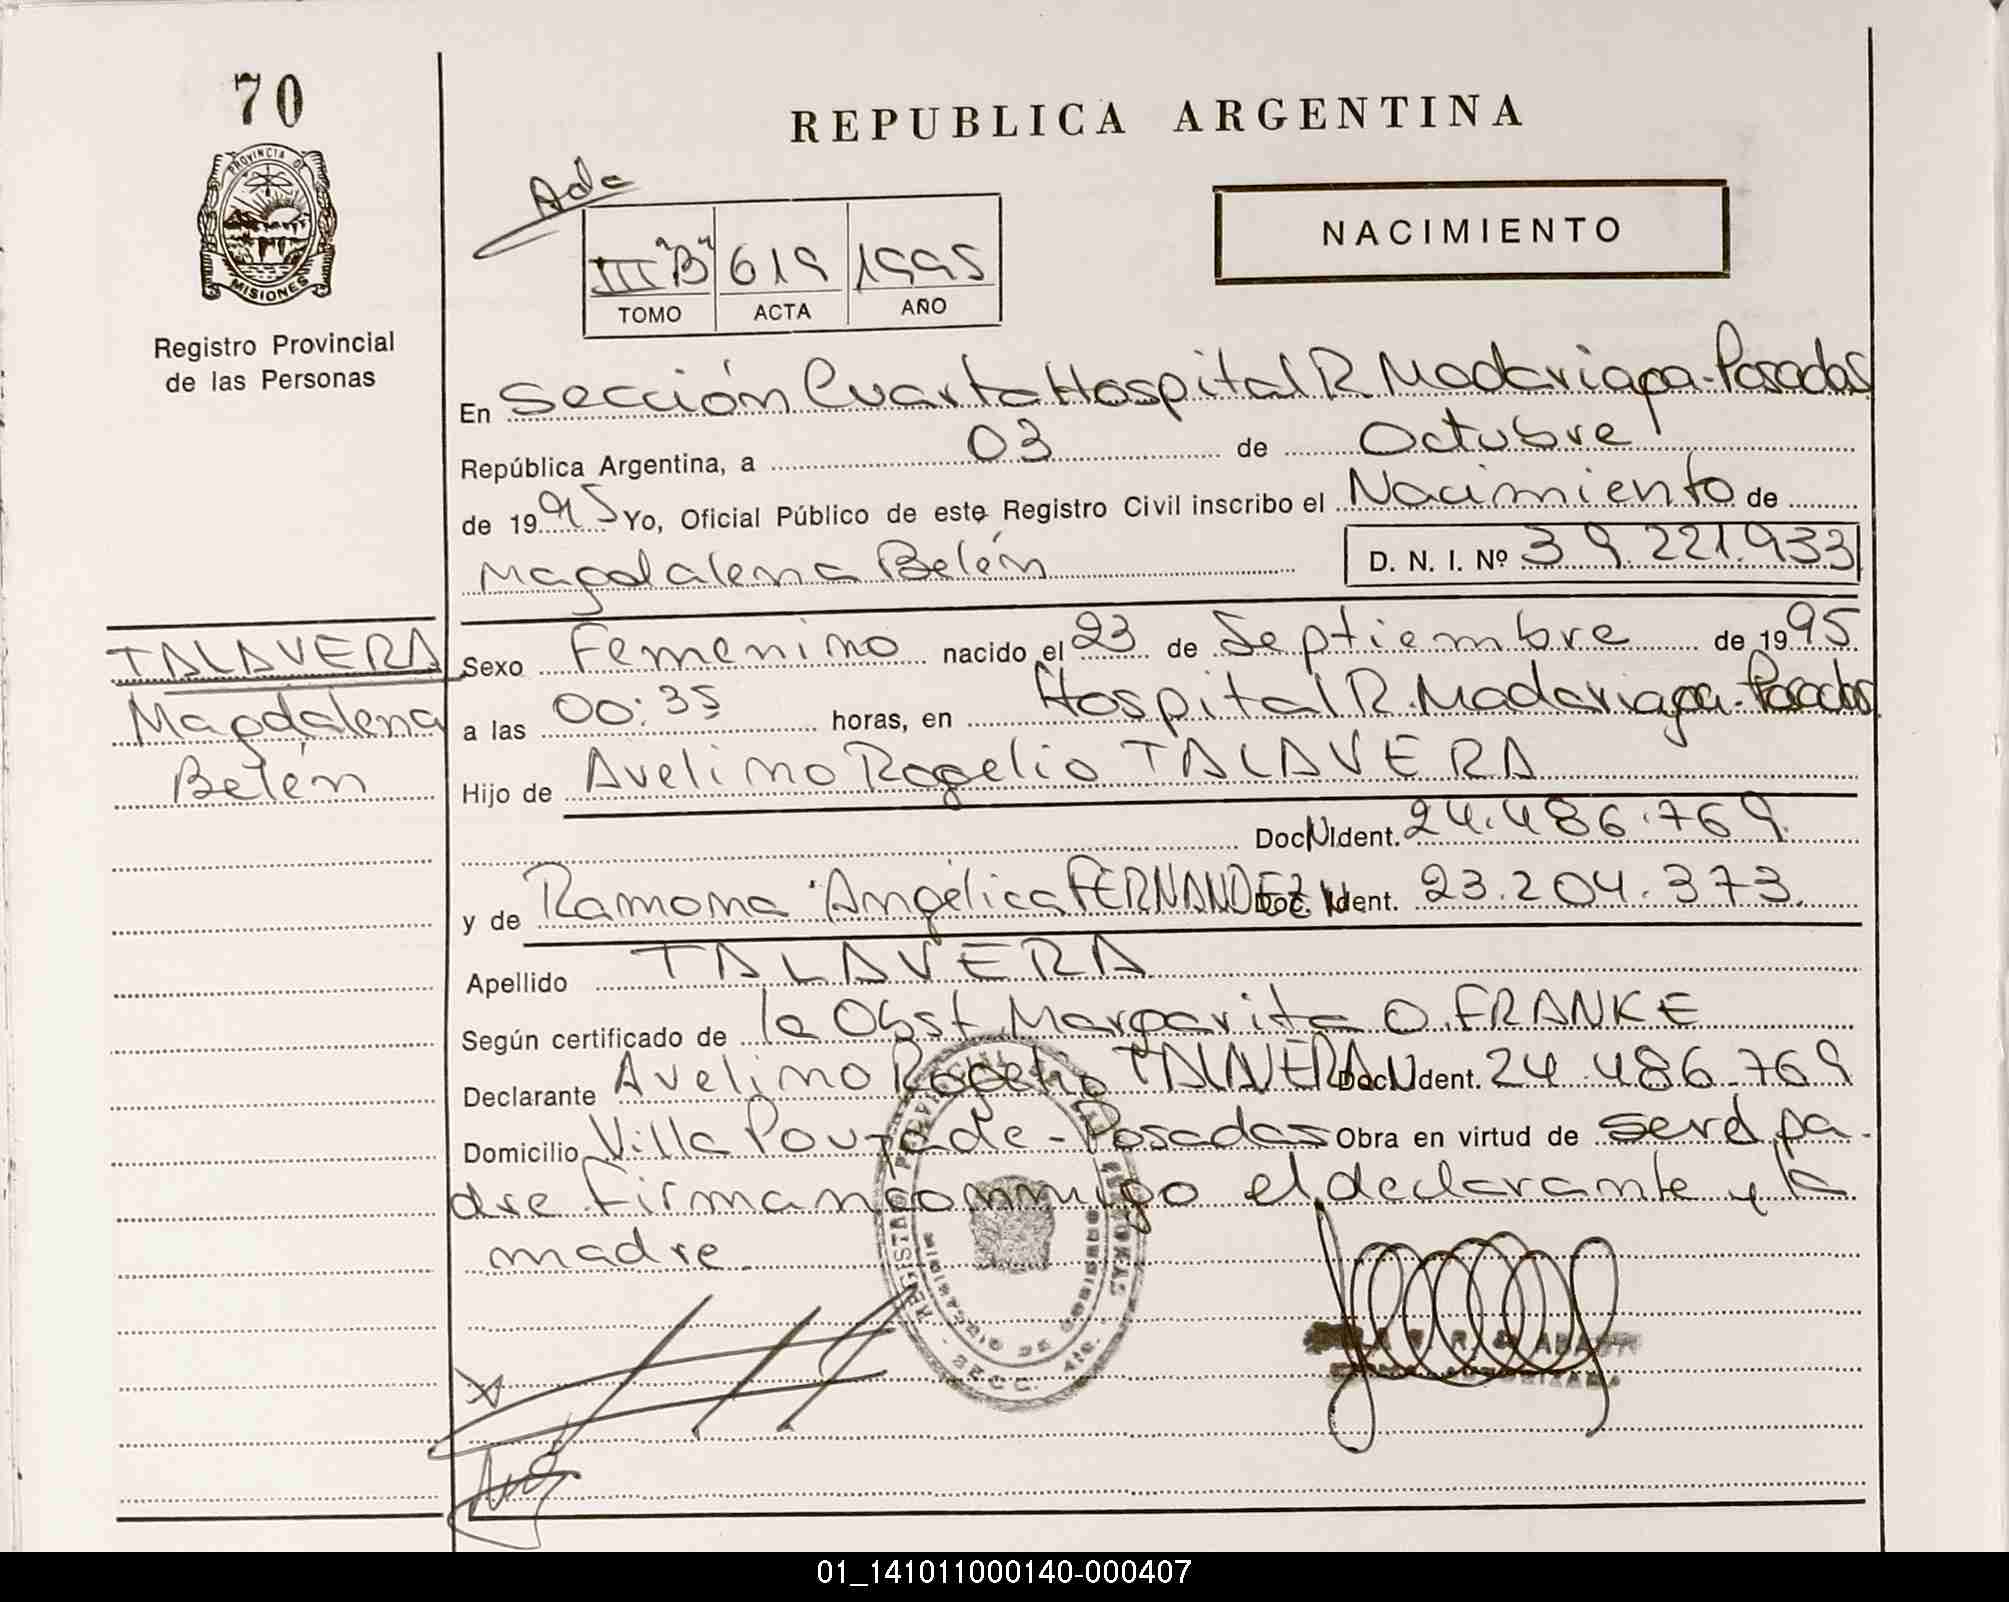 70
PROVINCIA DE
MISIONES
Registro Provincial
de las Personas
REPUBLICA ARGENTINA
NACIMIENTO
III "B" 619 1995
TOMO ACTA AÑO
En Sección Cuarta Hospital R. Madariaga - Posadas
República Argentina, a 03 de Octubre
de 1995 Yo, Oficial Público de este Registro Civil inscribo el Nacimiento de
Magdalena Belén D. N. I. Nº 39.221.933
TALAVERA
Magdalena
Belén
Sexo Femenino nacido el 23 de Septiembre de 1995
a las 00:35 horas, en Hospital R. Madariaga - Posadas
Hijo de Avelino Rogelio TALAVERA
Doc. N. Ident. 24.486.769
y de Ramona Angélica FERNANDEZ Doc. N. Ident. 23.204.373
Apellido TALAVERA
Según certificado de la Obst Margarita O. FRANKE
Declarante Avelino Rogelio TALAVERA Doc N Ident. 24.486.769
Domicilio Villa Poujade - Posadas Obra en virtud de ser el pa-
dre firman conmigo el declarante y la
madre
REGISTRO PROVINCIAL DE LAS PERSONAS
MINISTERIO DE GOBIERNO
SECC. 4ta.
01_141011000140-000407